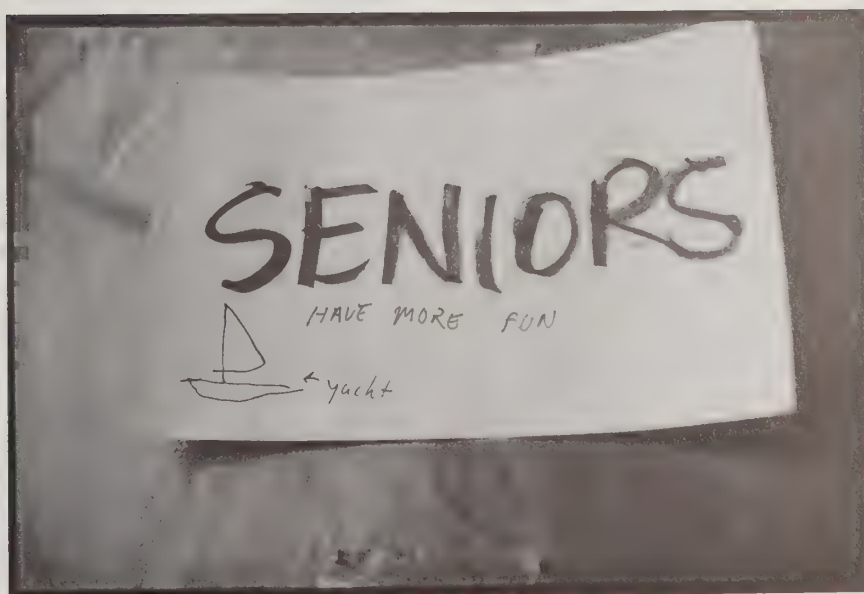 SENIORS
HAVE MORE FUN
← yacht